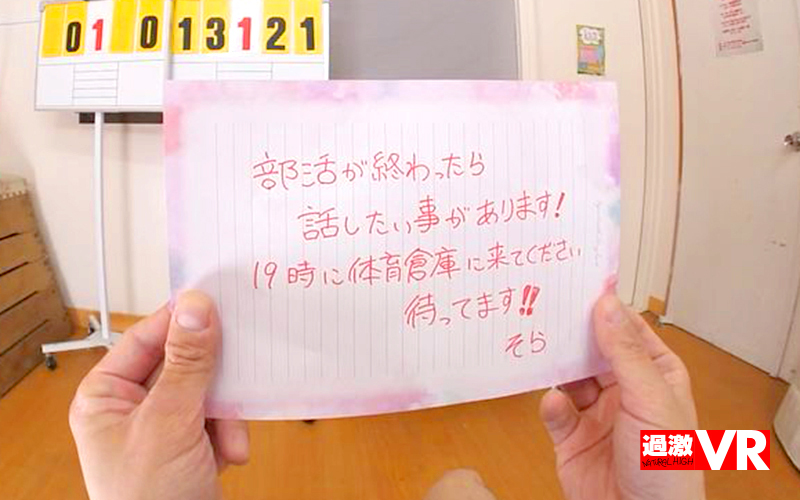 01 013121
部活が終わったら
話したい事があります!
19時に体育倉庫に来てください
待ってます!!
そら
過激VR